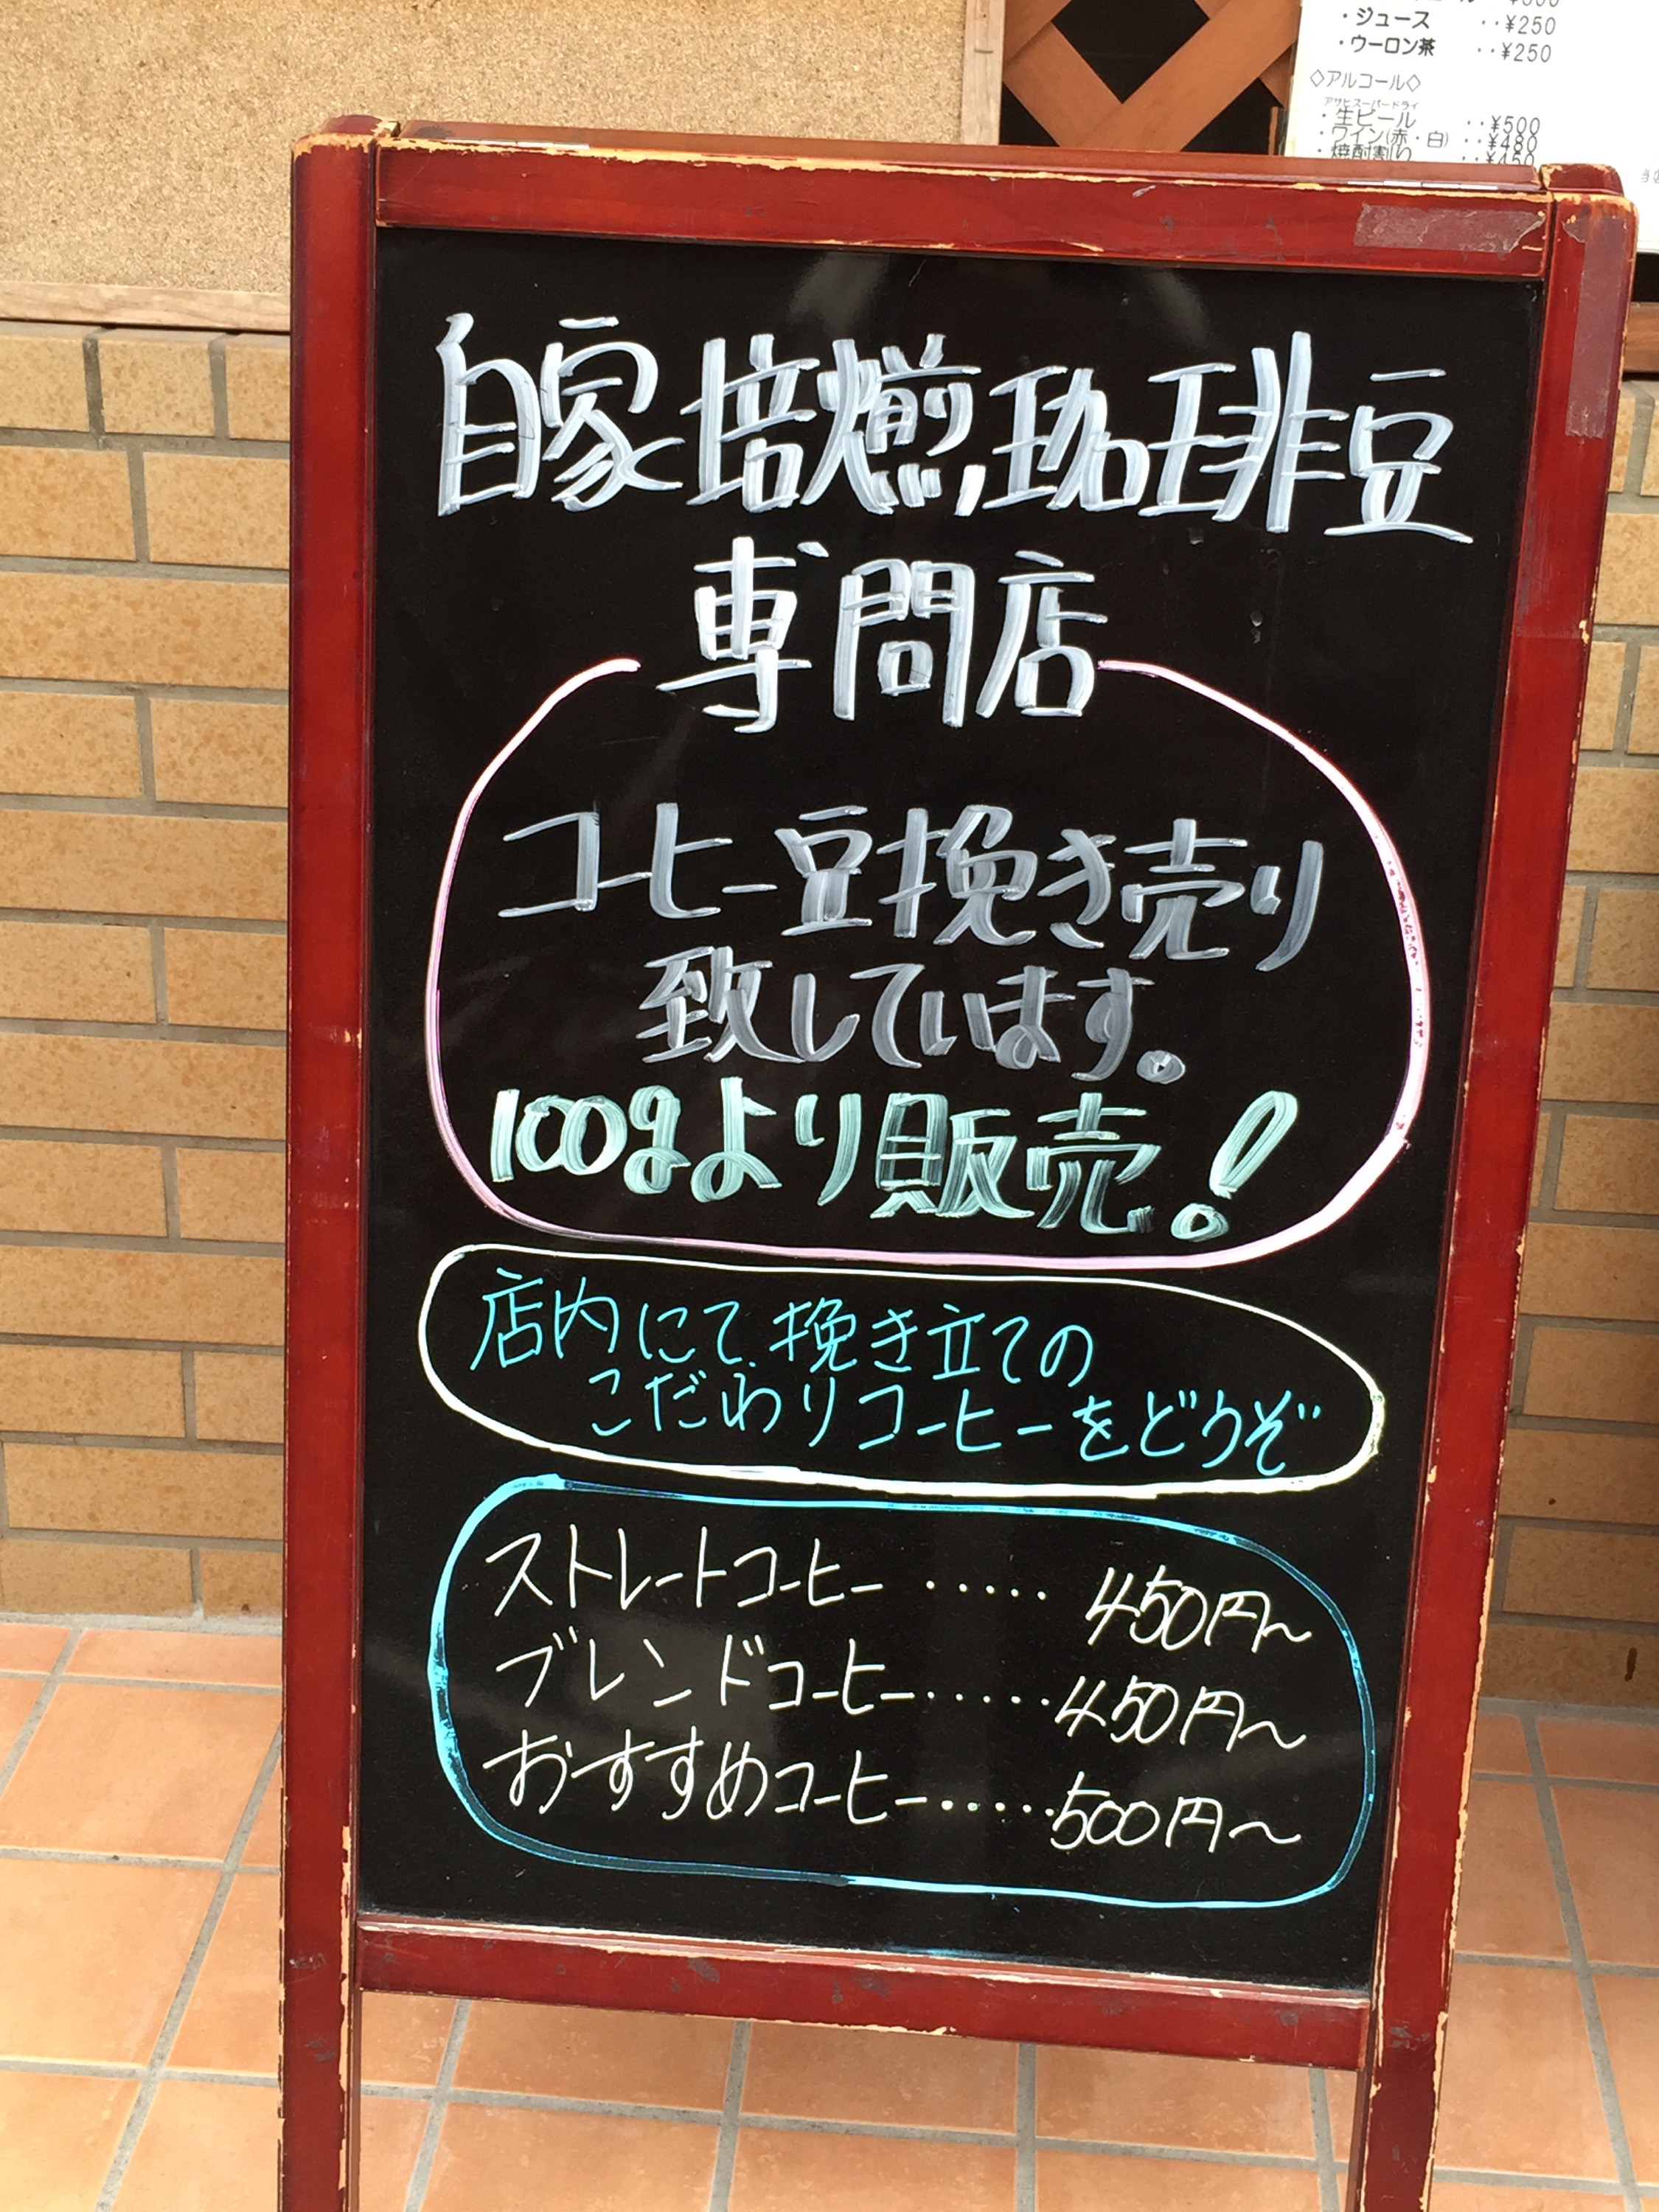 ・ジュース ‥¥250
・ウーロン茶 ‥¥250
◇アルコール◇
アサヒスーパードライ
・生ビール ‥¥500
・ワイン(赤・白) ‥¥480
・焼酎割り ‥¥450
自家焙煎,珈琲豆
専門店
コーヒー豆挽き売り
致しています。
100gより販売!
店内にて、挽き立ての
こだわりコーヒーをどうぞ
ストレートコーヒー ‥‥‥ 450円〜
ブレンドコーヒー‥‥‥450円〜
おすすめコーヒー‥‥‥500円〜